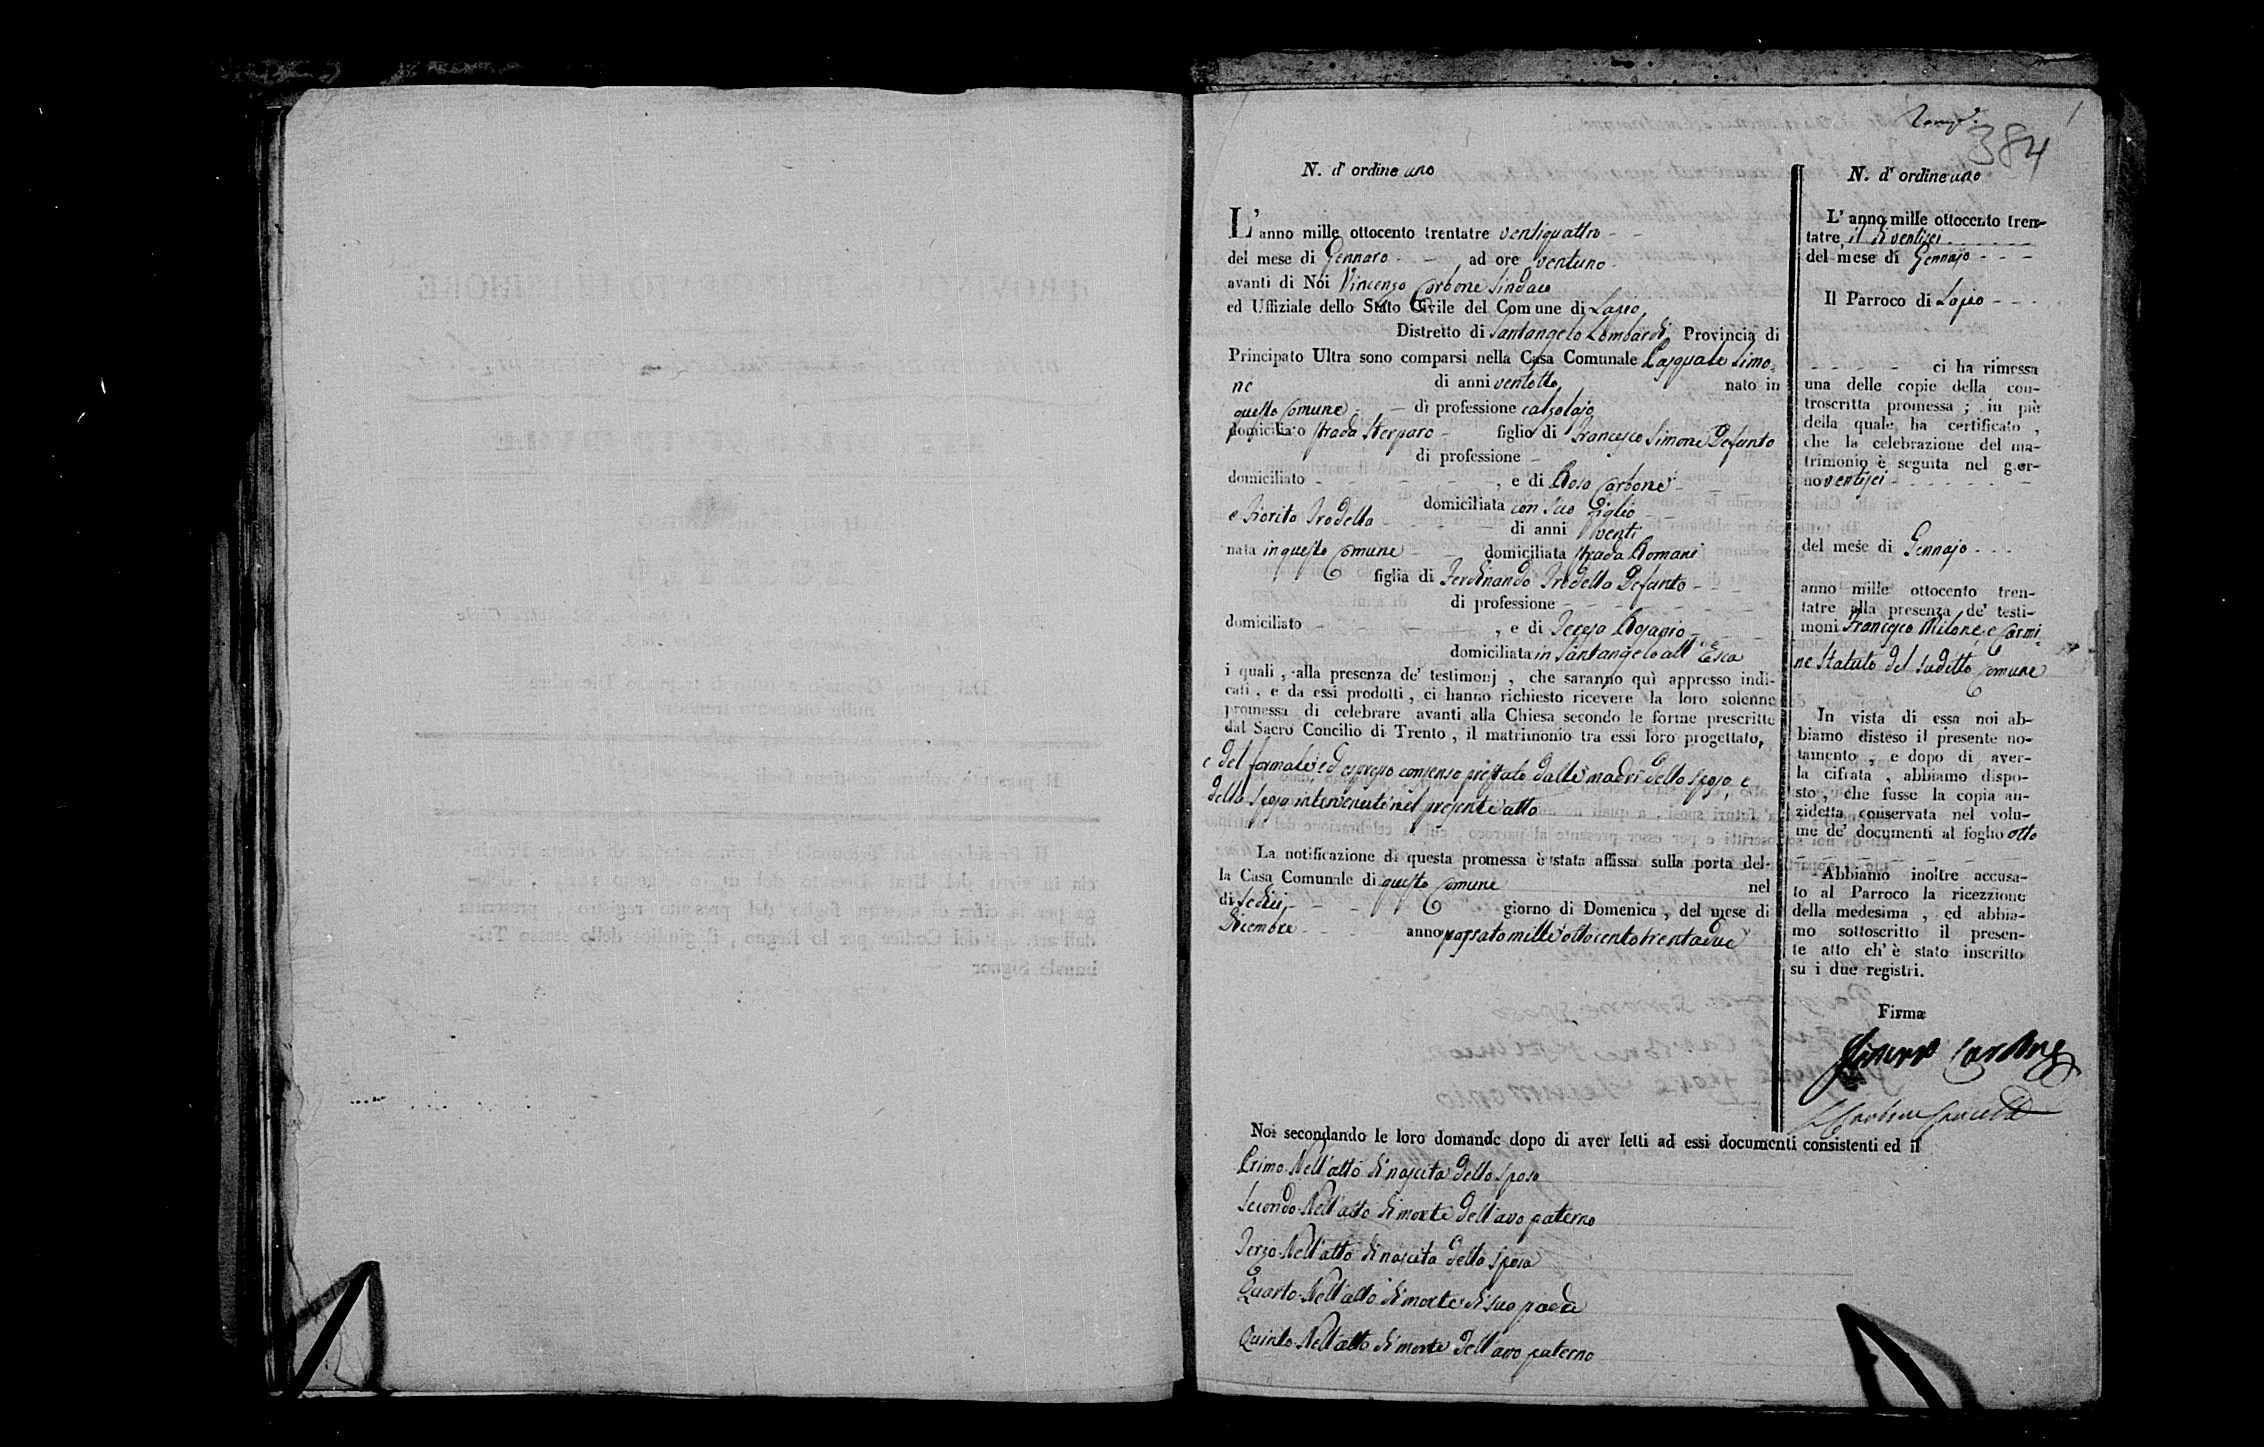 384
1
N. d' ordine uno
L' anno mille ottocento trentatre ventiquattro
del mese di Gennaro ad ore ventuno
avanti di Noi Vincenzo Carbone Sindaco
ed Uffiziale dello Stato Civile del Comune di Lapio
Distretto di Santangelo Lombardi Provincia di
Principato Ultra sono comparsi nella Casa Comunale Pasquale Simo-
ne di anni ventotto nato in
questo Comune di professione calzolajo
domiciliato strada Sterparo figlio di Francesco Simone Defunto
di professione
domiciliato , e di Rosa Carbone
domiciliata con suo Figlio
e Fiorita Trodella di anni venti
nata in questo Comune domiciliata strada Romani
figlia di Ferdinando Trodella Defunto
di professione
domiciliato , e di Teresa
domiciliata in Santangelo all' Esca
i quali , alla presenza de' testimonj , che saranno quì appresso indi-
cati , e da essi prodotti , ci hanno richiesto ricevere la loro solenne
promessa di celebrare avanti alla Chiesa secondo le forme prescritte
dal Sacro Concilio di Trento , il matrimonio tra essi loro progettato,
e del formale ed espresso consenso prestato dalle madri dello sposo, e
della sposa intervenute nel presente atto
La notificazione di questa promessa è stata affissa sulla porta del-
la Casa Comunale di questo Comune nel
di sedici giorno di Domenica , del mese di
Dicembre anno passato mille ottocento trentadue
N. d' ordine uno
L' anno mille ottocento tren-
tatre il di ventisei
del mese di Gennajo
Il Parroco di Lapio
ci ha rimessa
una delle copie della con-
troscritta promessa ; in piè
della quale ha certificato ,
che la celebrazione del ma-
trimonio è seguita nel gior-
no ventisei
del mese di Gennajo
anno mille ottocento tren-
tatre alla presenza de' testi-
moni Francesco Milone, e Carmi-
ne Statuto del sudetto Comune
In vista di essa noi ab-
biamo disteso il presente no-
tamento , e dopo di aver-
la cifrata , abbiamo dispo-
sto , che fusse la copia an-
zidetta conservata nel volu-
me de' documenti al foglio otto
Abbiamo inoltre accusa-
to al Parroco la ricezzione
della medesima , ed abbia-
mo sottoscritto il presen-
te atto ch' è stato inscritto
su i due registri.
Firma
Noi secondando le loro domande dopo di aver letti ad essi documenti consistenti ed il
Primo Nell'atto di nascita dello sposo
Secondo Nell'atto di morte dell'avo paterno
Terzo Nell'atto di nascita della sposa
Quarto Nell'atto di morte di suo padre
Quinto Nell'atto di morte dell'avo paterno